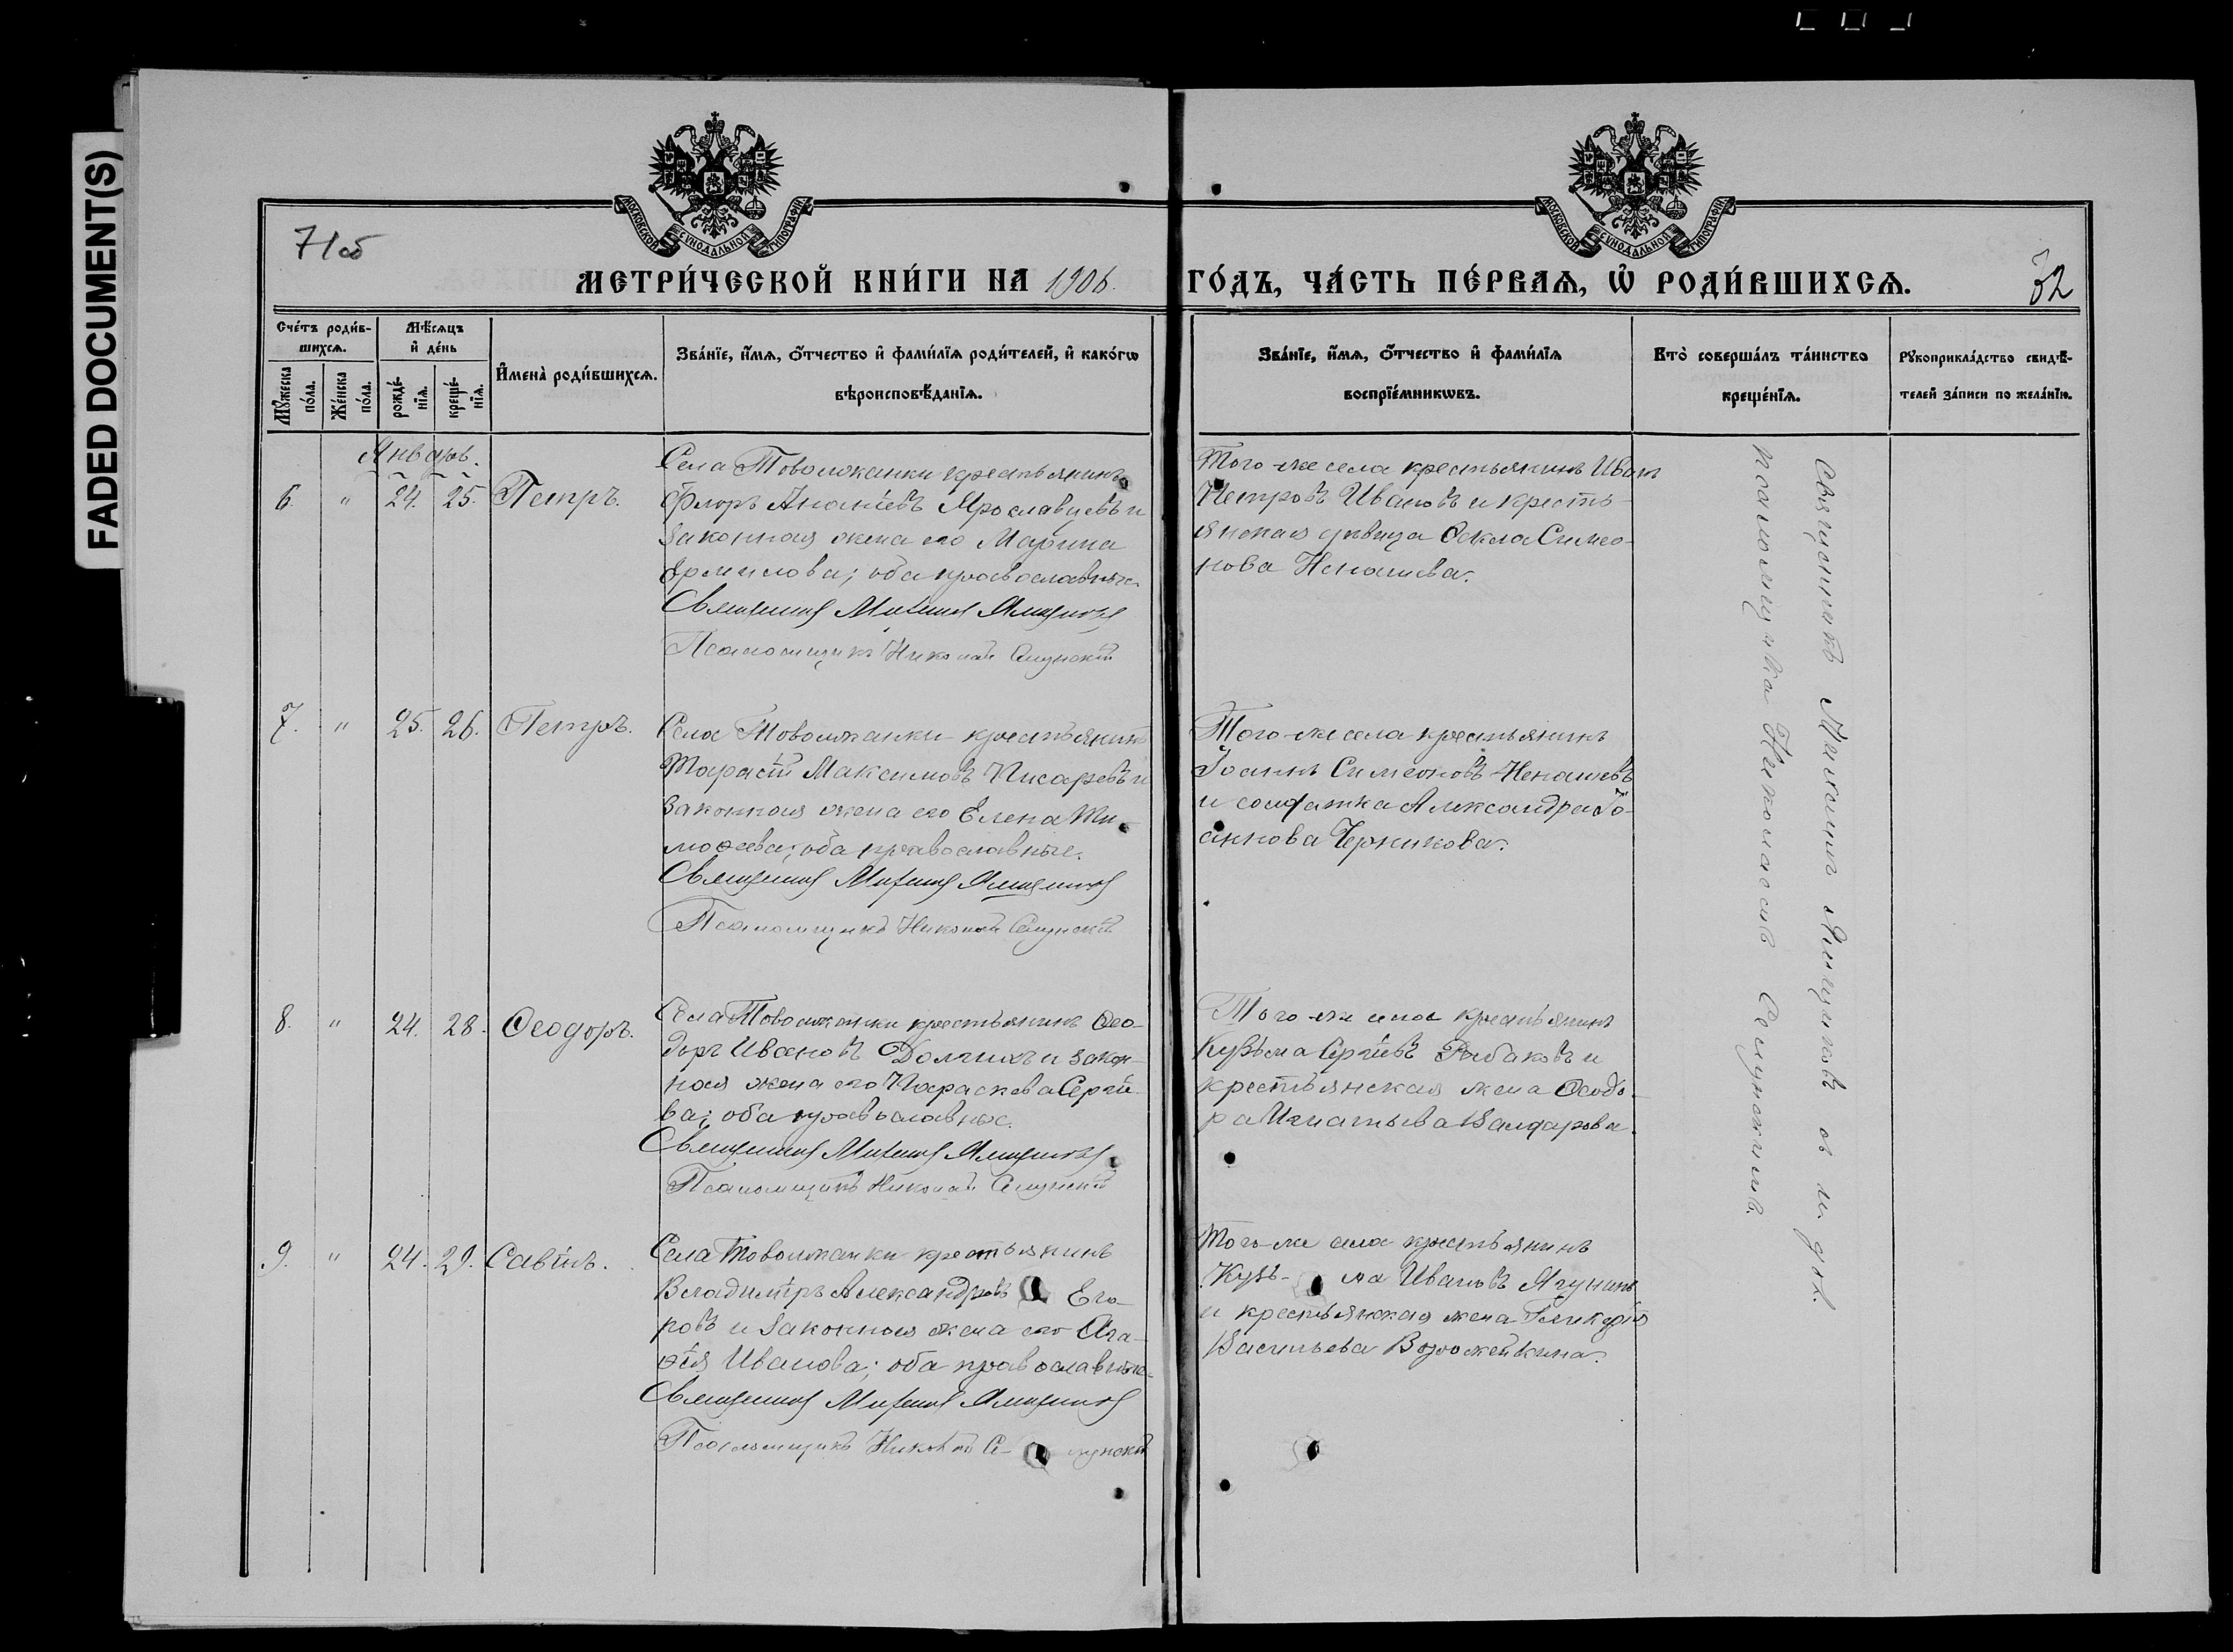 FADED DOCUMENT(S)
71об
МОСКОВСКОЙ СѴНОДАЛЬНОЙ ТИПОГРАФІИ
МОСКОВСКОЙ СѴНОДАЛЬНОЙ ТИПОГРАФІИ
МЕТРИ́ЧЕСКОЙ КНИ́ГИ НА 1906. ГО́ДЪ, ЧА́СТЬ ПЕ́РВАѦ, Ѿ РОДИ́ВШИХСѦ.
32
Сче́тъ роди́в-
шихсѧ.
Мꙋ́жеска по́ла.
Же́нска по́ла.
Мѣ́сѧцъ
и҆ де́нь
рожде́-
нїѧ.
креще́-
нїѧ.
И҆мена̀ роди́вшихсѧ.
Зва́нїе, и҆́мѧ, ѻ҆́тчество и҆ фами́лїѧ роди́телей, и҆ како́гѡ
вѣроисповѣ́данїѧ.
Зва́нїе, и҆́мѧ, ѻ҆́тчество и҆ фами́лїѧ
воспрїе́мникѡвъ.
Кто̀ соверша́лъ та́инство
креще́нїѧ.
Рꙋкоприкла́дство свидѣ́-
телей за́писи по жела́нїю.
Январь.
6. " 24. 25. Петръ.
Села Товолжанки крестьянинъ
Флоръ Ананіевъ Ярославцевъ и
законная жена его Марина
Ермилова; оба православные.
Священникъ Михаилъ Ямщиковъ
Псаломщикъ Николай Селунскій
Того-же села крестьянинъ Иванъ
Петровъ Ивановъ и кресть-
янская дѣвица Ѳекла Симео-
нова Ненашева.
7. " 25. 26. Петръ.
Села Товолжанки крестьянинъ
Тарасій Максимовъ Писаревъ и
законная жена его Елена Ти-
моѳеева; оба православные.
Священникъ Михаилъ Ямщиковъ
Псаломщикъ Николай Селунскій
Того-же села крестьянинъ
Іоаннъ Симеоновъ Ненашевъ
и солдатка Александра Іо-
аннова Черникова.
8. " 24. 28. Ѳеодоръ.
Села Товолжанки крестьянинъ Ѳео-
доръ Ивановъ Долгихъ и закон-
ная жена его Параскева Сергіе-
ва; оба православные.
Священникъ Михаилъ Ямщиковъ
Псаломщикъ Николай Селунскій
Того-же села крестьянинъ
Кузьма Сергіевъ Рыбаковъ и
крестьянская жена Ѳеодо-
ра Игнатьева
9. " 24. 29. Савинъ.
Села Товолжанки крестьянинъ
Владиміръ Александровъ Его-
ровъ и законная жена его Ага-
ѳія Иванова; оба православные.
Священникъ Михаилъ Ямщиковъ
Псаломщикъ Николай Се- лунскій
Того-же села крестьянинъ
Кузь- ма Ивановъ Ягунинъ
и крестьянская жена Гликерія
Васильева
Священникъ Михаилъ Ямщиковъ съ и. д.
псаломщика Николаемъ Селунскимъ.